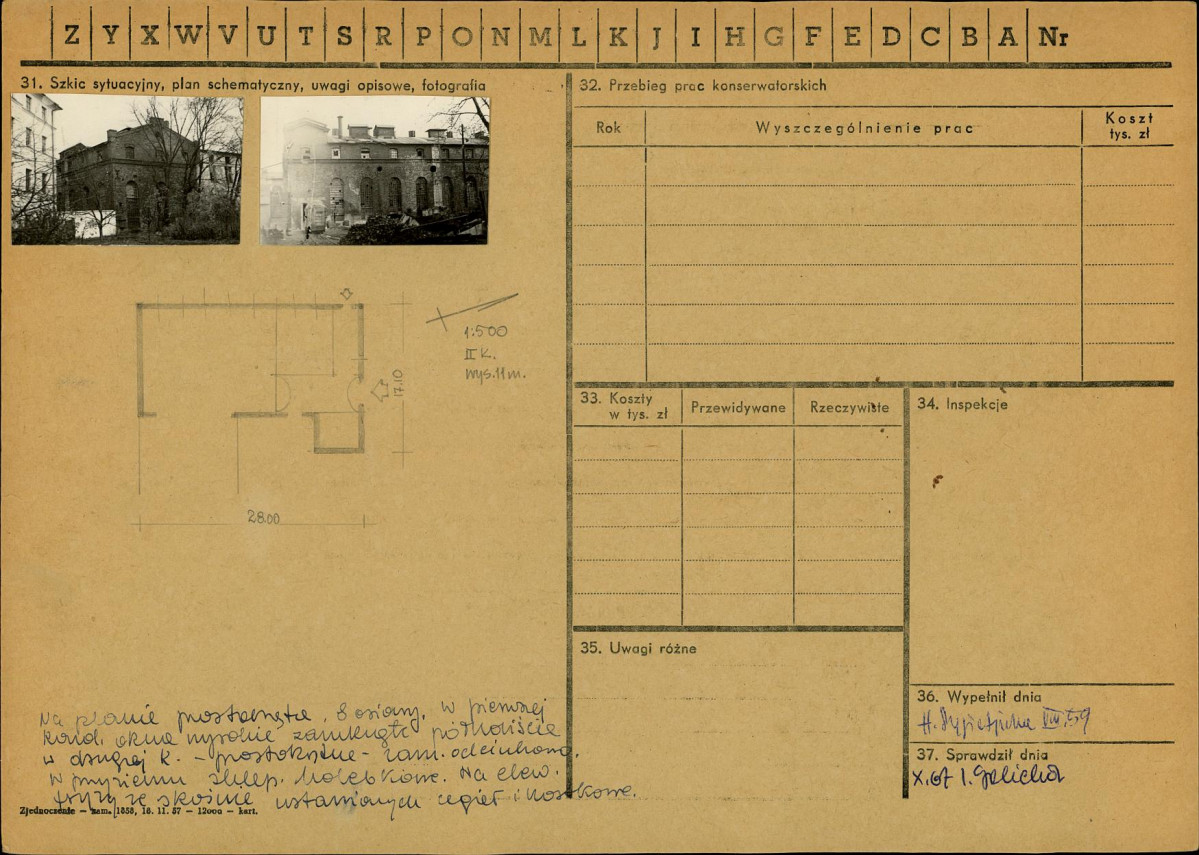 Z Y X W V U T S R P O N M L K J I H G F E D C B A Nr
31. Szkic sytuacyjny, plan schematyczny, uwagi opisowe, fotografia
1:500
II K.
wys. 11 m.
17.10
28.00
Na planie prostokąta, 8 osiowy, w pierwszej
kond. okna wysokie zamknięte półkoliście
w drugiej k. – prostokątne – zam. odcinkowo.
W przyziemu sklep. kolebkowe. Na elew.
fryzy ze skośnie ustawionych cegieł i kostkowe.
Zjednoczenie — zam. 1858, 18. 11. 57 — 12000 — kart.
32. Przebieg prac konserwatorskich
Rok
Wyszczególnienie prac
Koszt
tys. zł
33. Koszty
w tys. zł
Przewidywane
Rzeczywiste
34. Inspekcje
35. Uwagi różne
36. Wypełnił dnia
H. VIII. 59
37. Sprawdził dnia
X. 67 I. Galicka